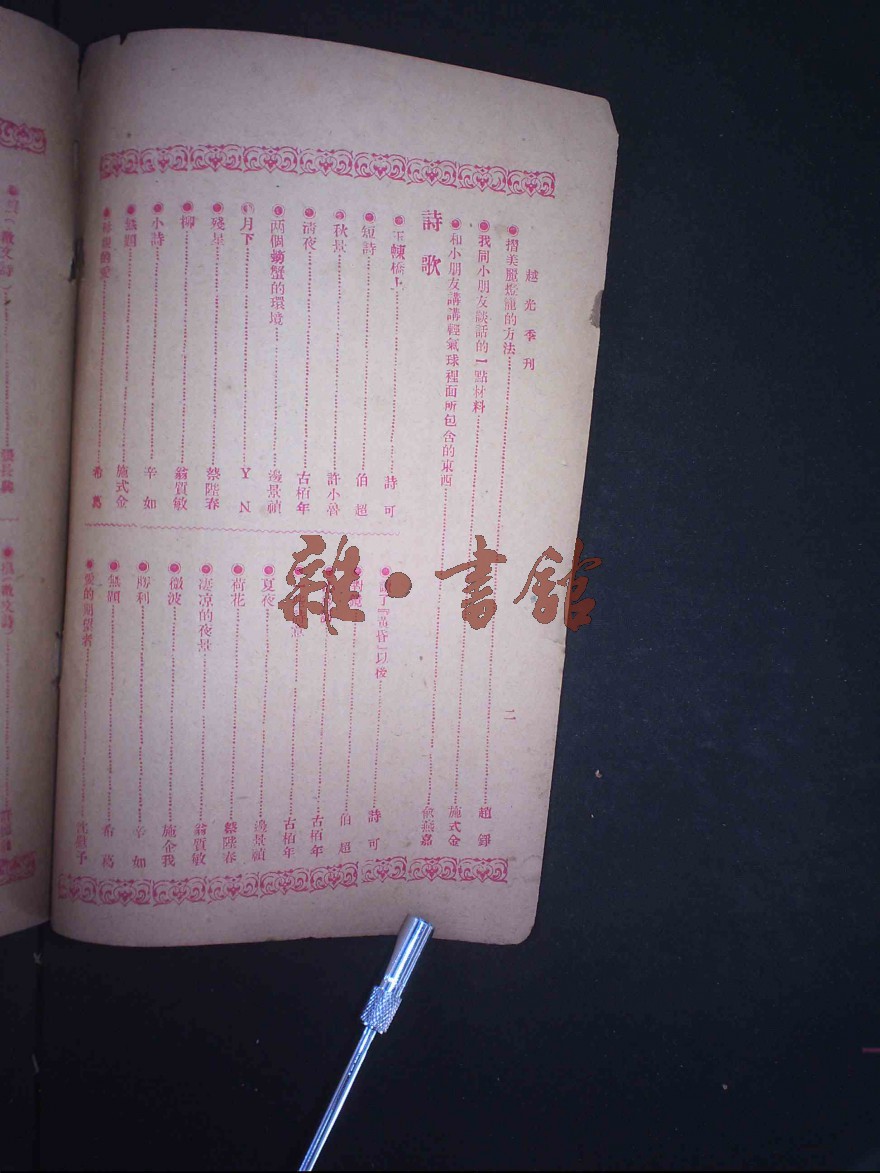 越光季刊
二
摺美麗燈籠的方法 趙錚
我同小朋友談話的一點材料 施式金
和小朋友講講輕氣球裡面所包含的東西 俞燕嘉
詩歌
玉蝀橋上 詩可
短詩 伯超
秋景 許小魯
清夜 古栢年
两個螃蟹的環境 邊景禎
月下 YN
殘星 蔡陞春
柳 翁質敏
小詩 辛如
無題 施式金
母親的愛 希葛
了『黃昏』以後 詩可
伯超
古栢年
古栢年
夏夜 邊景禎
荷花 蔡陞春
凄凉的夜景 翁質敏
微波 施企我
勝利 辛如
無題 希葛
愛的期望者
散文詩
散文詩
雜·書館